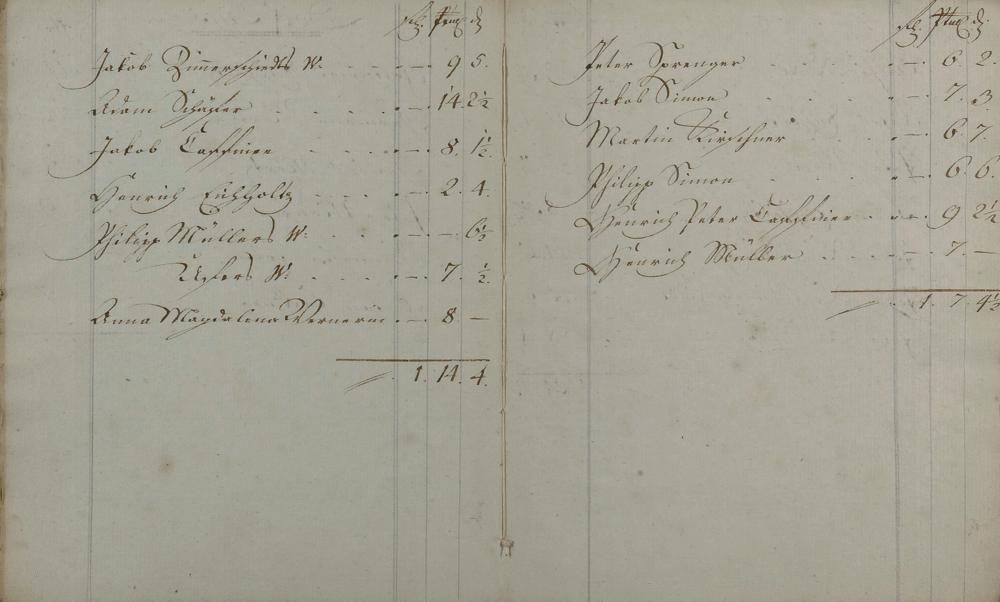 Jakob Zimerschiedts W. — 9 5.
Adam Schäfer — 14. 2½
Jakob Caffinee — 8. 1½.
Henrich Eichholtz — 2. 4.
Philipp Müllers W. — — 6½
W. — 7. ½.
Anna Magdalina Wernerin — 8 —
1. 14. 4.
Peter Sprenger — 6. 2.
Jakob Simon — 7. 3
Martin Kirschner — 6. 7.
Philipp Simon — 6. 6.
Henrich Peter Caffinee — 9 2½
Henrich Müller — 7. —
1. 7. 4½